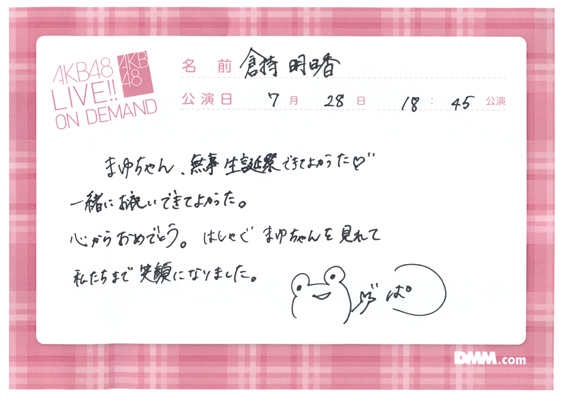 AKB48
LIVE!!
ON DEMAND
AKB
48
名前 倉持明日香
公演日 7月28日 18:45公演
まゆちゃん、無事生誕祭できてよかった♡
一緒にお祝いできてよかった。
心からおめでとう。はしゃぐ まゆちゃんを見れて
私たちまで笑顔になりました。
ぱ
DMM.com